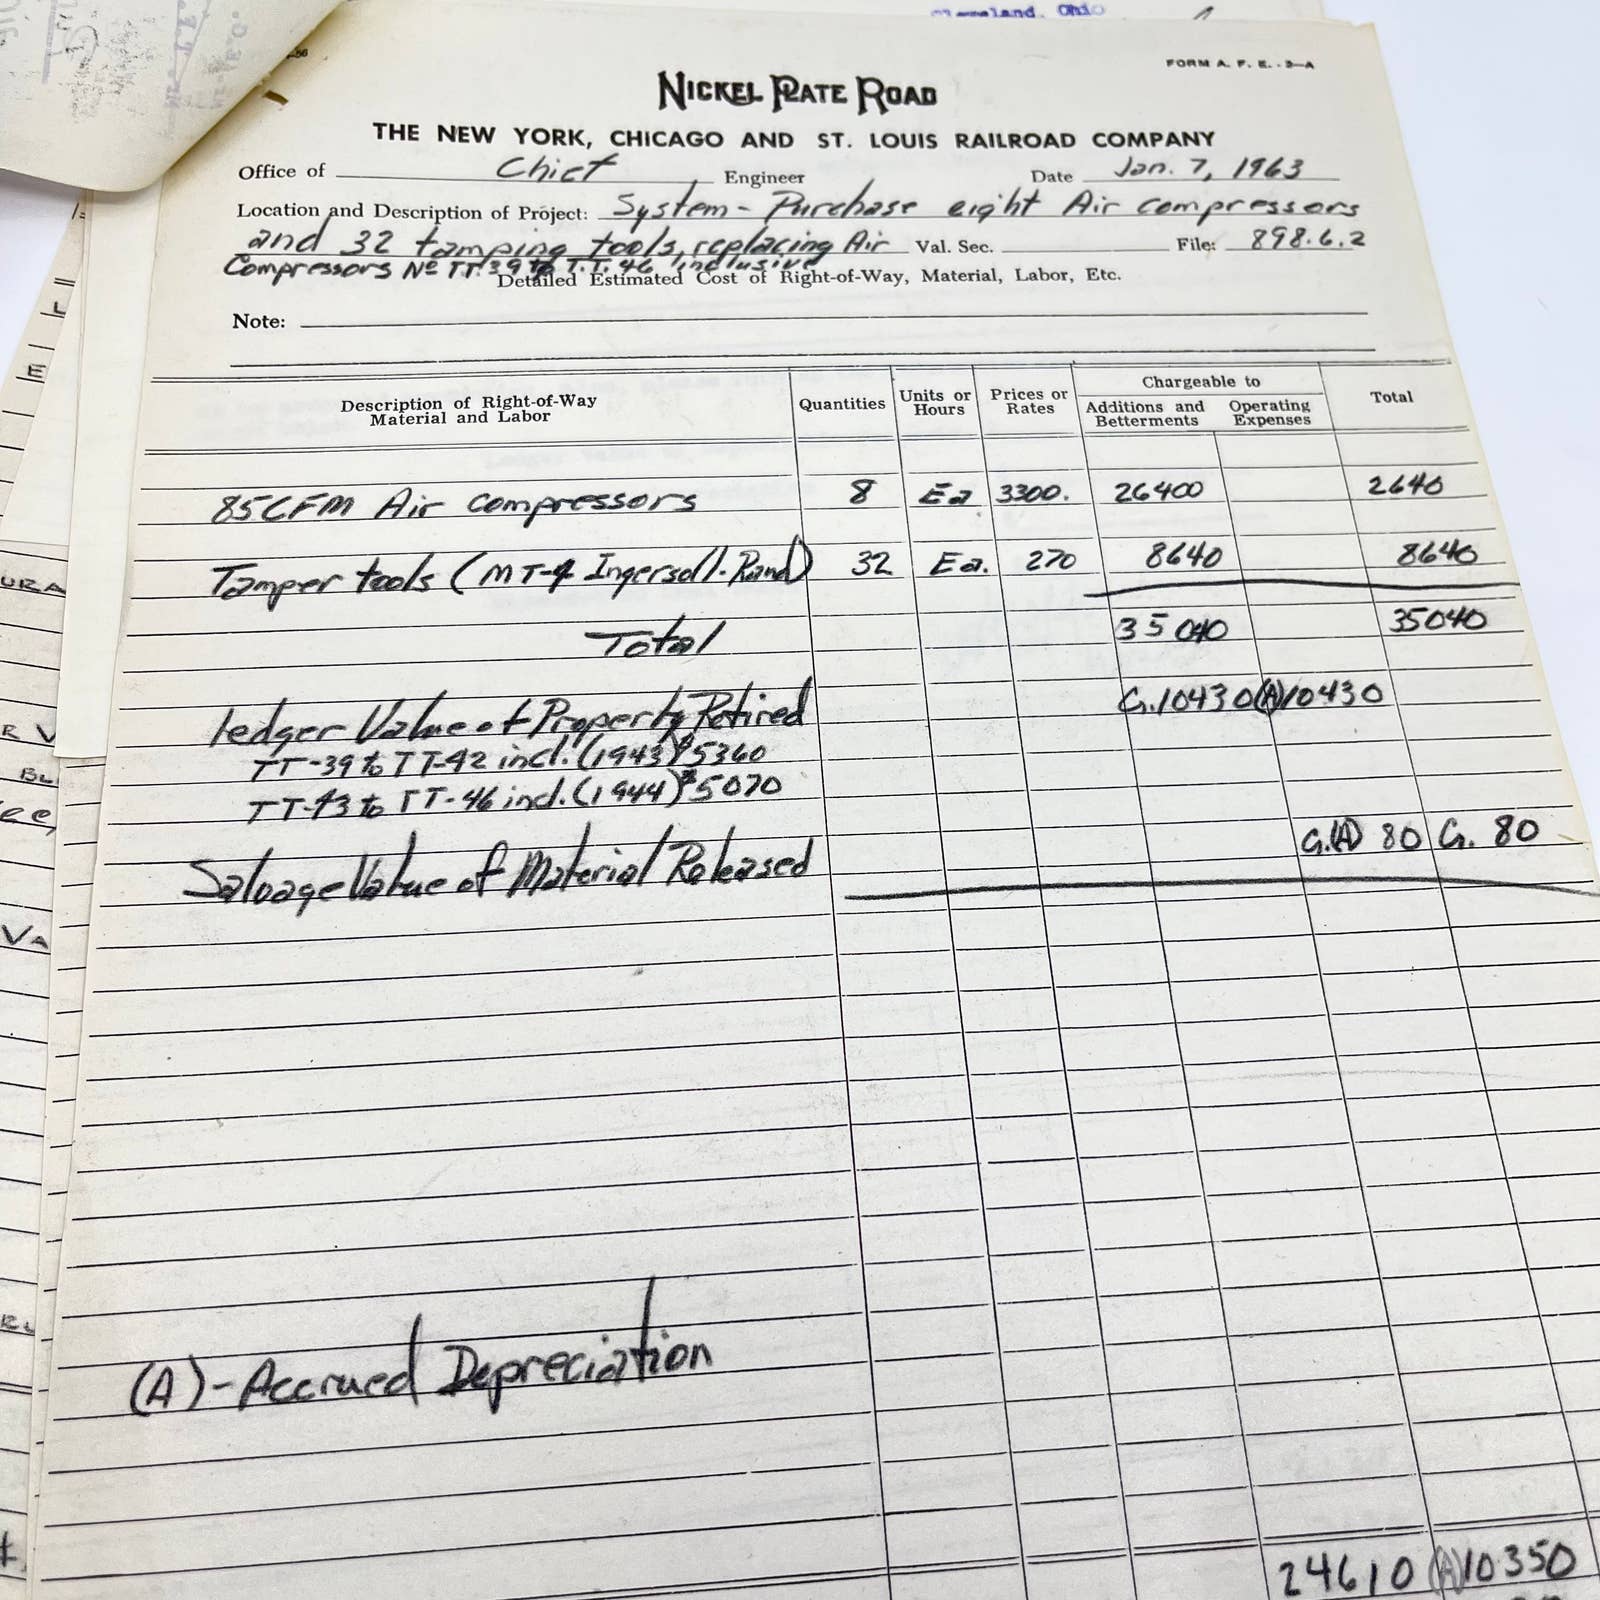 Cleveland, Ohio
FORM A. F. E. - 3—A
NICKEL PLATE ROAD
THE NEW YORK, CHICAGO AND ST. LOUIS RAILROAD COMPANY
Office of Chief Engineer Date Jan. 7, 1963
Location and Description of Project: System - Purchase eight Air compressors
and 32 tamping tools, replacing Air Val. Sec. File: 898.6.2
Compressors No TT.39 to T.T. 46 inclusive
Detailed Estimated Cost of Right-of-Way, Material, Labor, Etc.
Note:
Description of Right-of-Way Material and Labor Quantities Units or Hours Prices or Rates Chargeable to Additions and Betterments Operating Expenses Total
85 CFM Air compressors 8 Ea 3300. 26400 2640
Tamper tools (MT-4 Ingersoll-Rand) 32 Ea. 270 8640 8640
Total 35040 35040
ledger Value of Property Retired G.10430 (A)10430
TT-39 to TT-42 incl. (1943) $5360
TT-43 to TT-46 incl. (1944) $5070
Salvage Value of Material Released G.(A) 80 G. 80
(A)-Accrued Depreciation
24610 (A)10350